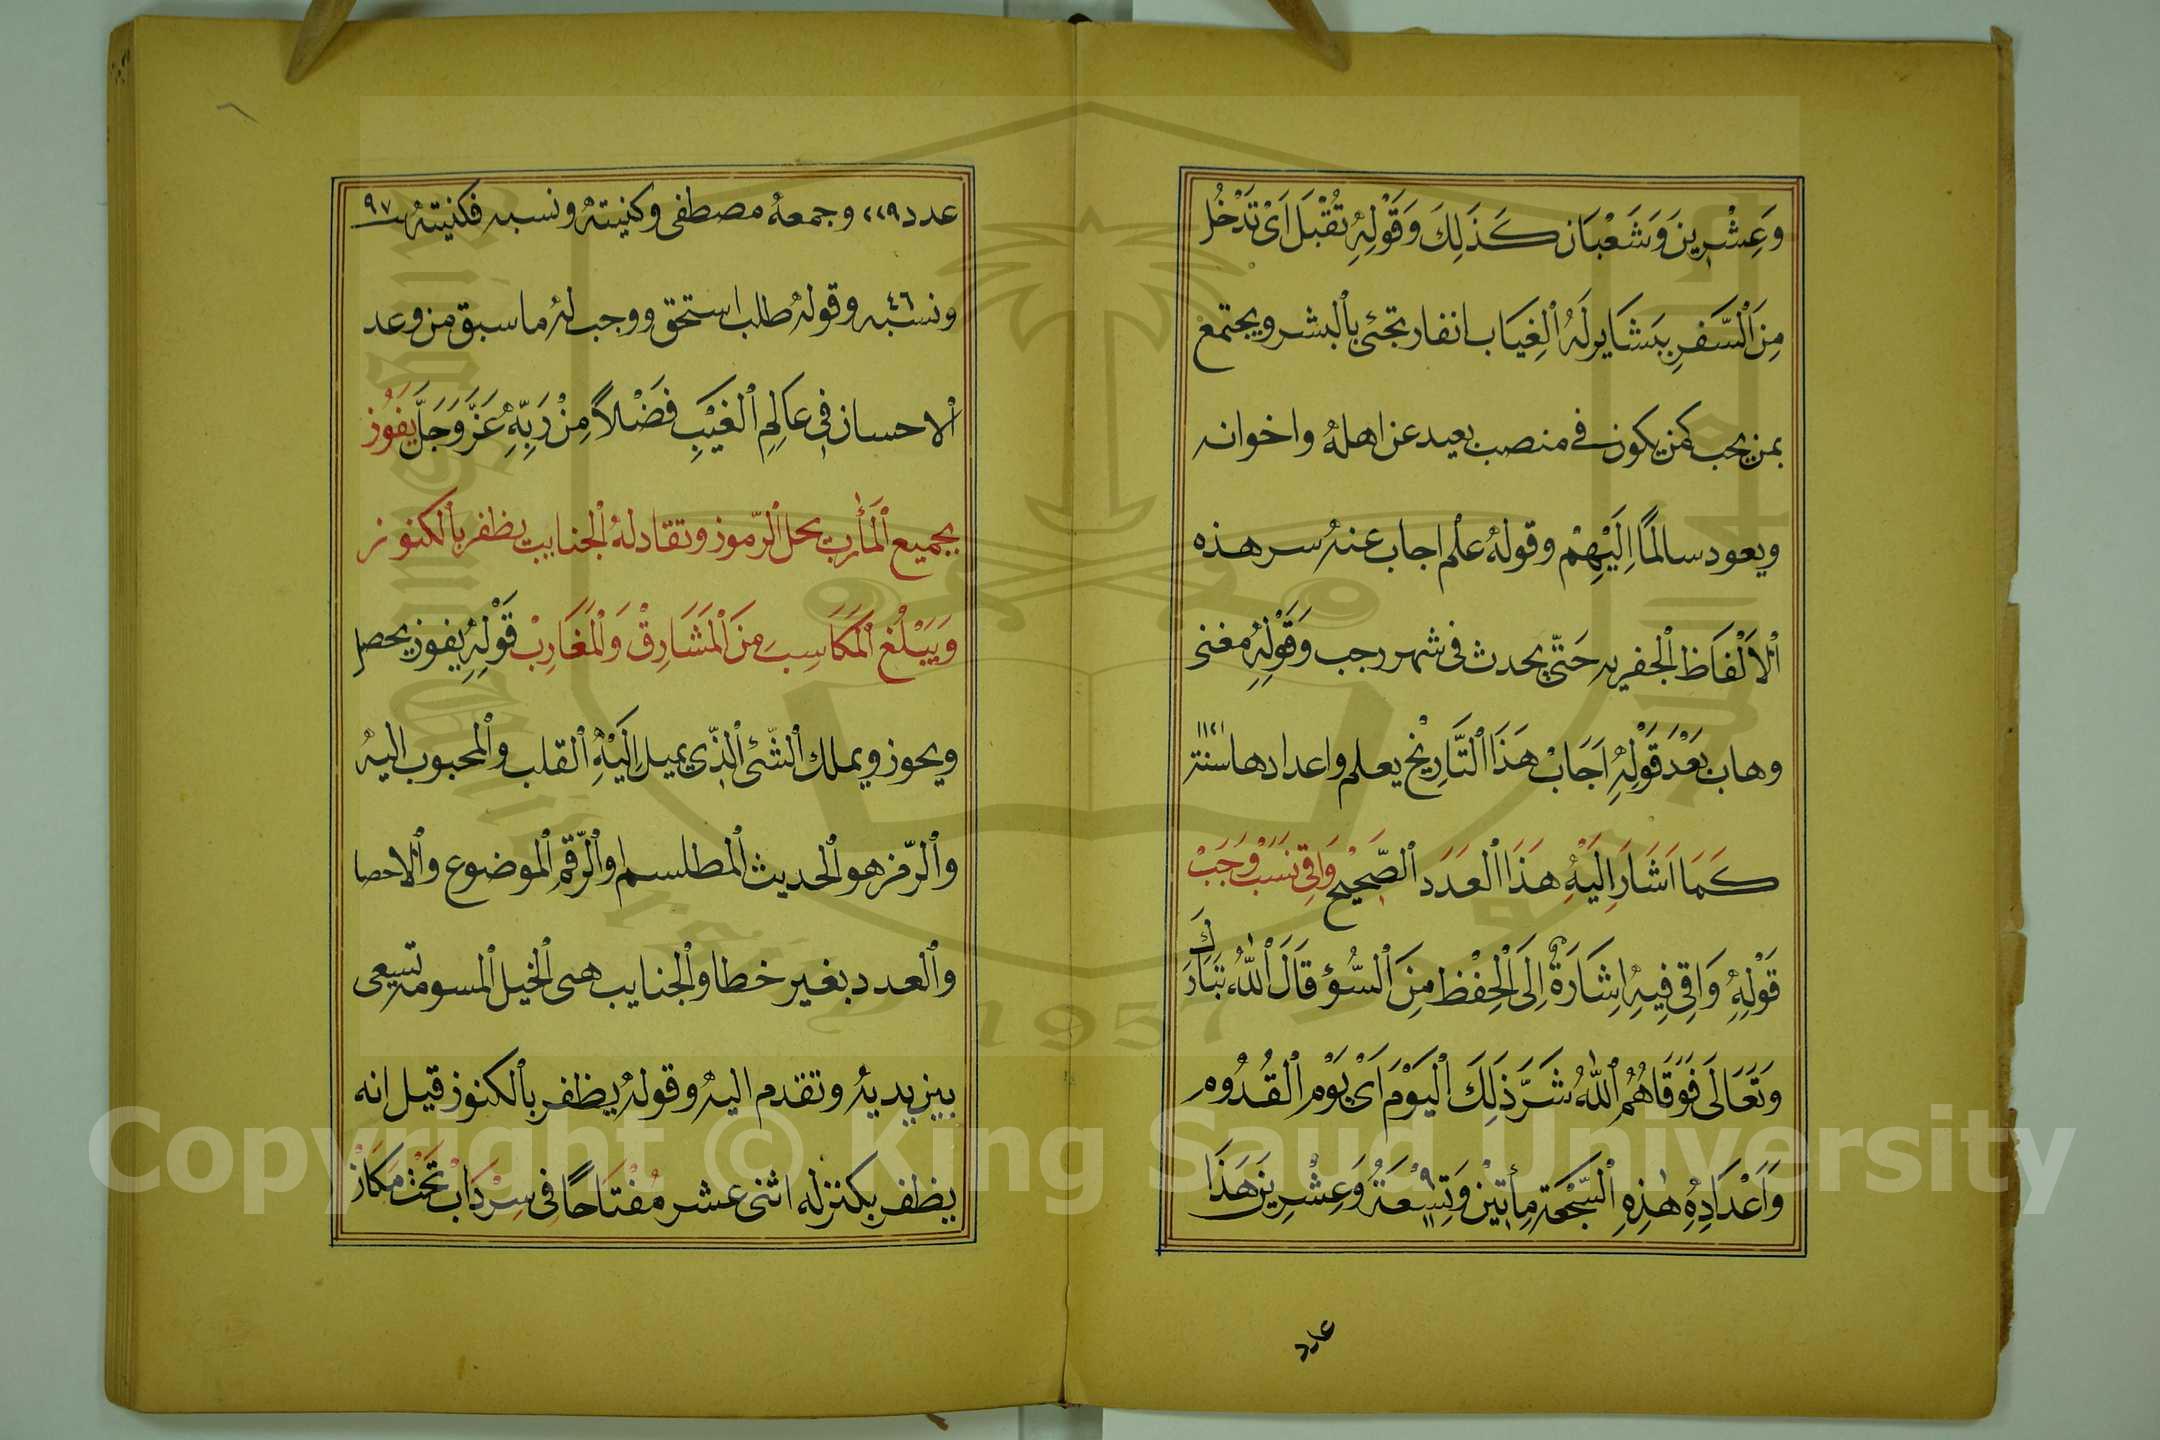 وَعِشْرِينَ وَشَعْبَان كَذَلِكَ وَقَوْلِهِ تُقْبَلَ اَىْ تَدْخُل
مِنَ ٱلسَّفَرِ بِبَشَايرلَهُ ٱلغِيَاب انفار تجئ بٱلبشر ويجتمع
بمن يحب كمن يكون فے منصب بعيد عن اهلهُ واخوانه
ويعود سالمًا اِلَيْهِمْ وقولهُ علم اجاب عنهُ سر هذه
ٱلاَلْفَاظ ٱلجفريه حَتّى يحدث فى شهر رجب وَقَوْلِهِ مغنى
وهاب بَعْدَ قَوْلِهِ اَجَابْ هَذَا ٱلتَّارِيْخ يعلم واعدادها سنة ١١٢١
كَمَا اَشَارَ اِلَيْهِ هَذَا ٱلعَدَد ٱلصَّحِيْح وَاقِى نَسَبْ وَجَبْ
قَوْلِهِ وَاقِى فِيهِ اِشَارَةٌ اِلَى ٱلْحِفْظ مِنَ ٱلسُّوْءِ قَالَ ٱللّٰهُ تَبَارَكَ
وَتَعَالَى فَوَقَاهُمُ ٱللّٰهُ شَرَّ ذَلِكَ ٱلْيَوْمَ اَىْ يَوْم ٱلقُدُوم
وَاَعْدَادِهِ هٰذِهِ ٱلسَّجْعَة مِأتَيْن وَتِسْعَةُ وَعِشْرِينَ هَذَا
عدد
عدد ٢٢٩ وجمعهُ مصطفى وكنيتهُ ونسبه فكنيتهُ ٩٧
ونسبه ٤٦ وقولهُ طلب استحق ووجب لهُ ما سبق من وعد
ٱلاحسان فى عَالِمِ ٱلغَيْبِ فَضْلاً مِنْ رَبِّهِ عَزَّ وَجَلَّ يَفُوْز
بجميع ٱلمَأرب بحل ٱلرّموز وتقاد لهُ ٱلجنايب يظفر بٱلكنوز
وَيَبْلُغ ٱلمَكَاسِبَ مِنَ ٱلْمَشَارِقْ وَٱلْمَغَارِبْ قَوْلِهِ يفوز يحصل
ويحوز ويملك ٱلشّئ ٱلذّى يميل اِلَيْهِ ٱلقلب وٱلمحبوب اليهُ
وٱلرّمز هو ٱلحديث ٱلمطلسم وٱلرّقم ٱلموضوع وٱلاحصا
وٱلعدد بغير خطا وٱلجنايب هى ٱلخيل ٱلمسومة تسعى
بين يديهُ وتقدم اليهُ وقولهُ يظفر بٱلكنوز قيل انه
يظفر بكنز له اثنى عشر مُفْتَاحًا فِى سِرْدَابْ تَحْت مَكَان
Copyright © King Saud University
1957